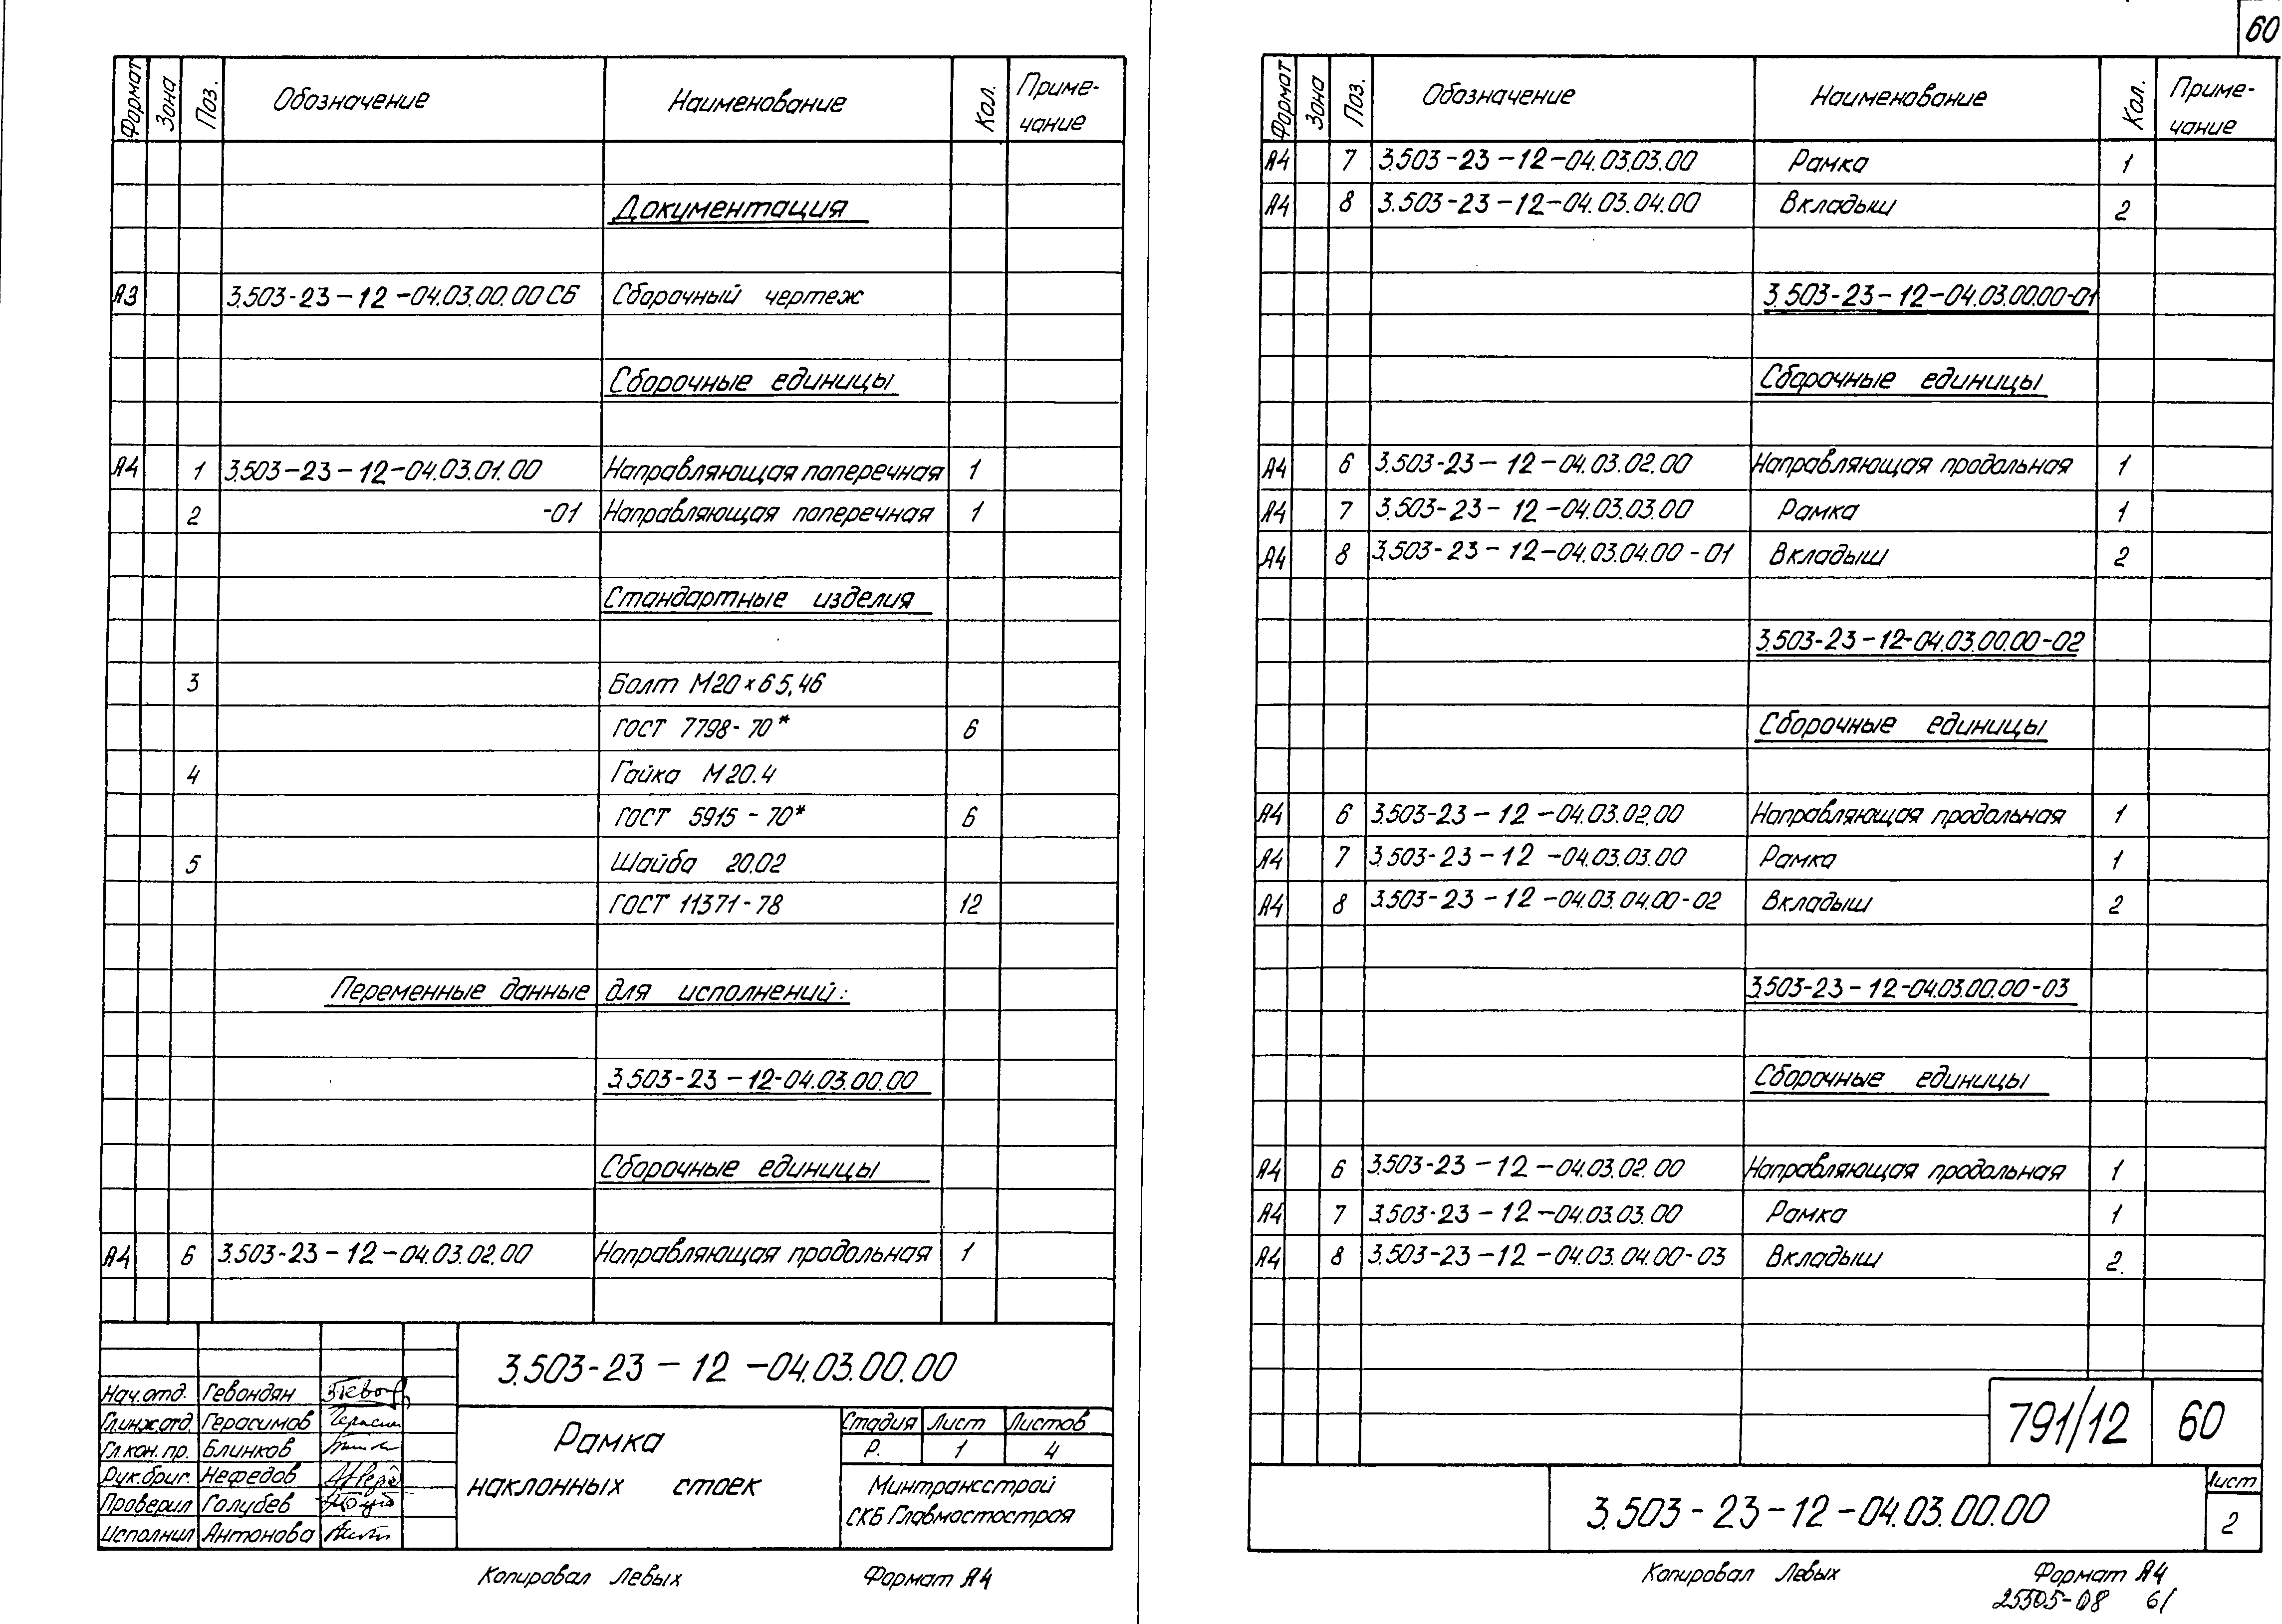 60
Формат Зона Поз. Обозначение Наименование Кол. Приме-
чание
Документация
А3 3.503-23-12-04.03.00.00 СБ Сборочный чертеж
Сборочные единицы
А4 1 3.503-23-12-04.03.01.00 Направляющая поперечная 1
2 -01 Направляющая поперечная 1
Стандартные изделия
3 Болт М20×65,46
ГОСТ 7798-70* 6
4 Гайка М20.4
ГОСТ 5915-70* 6
5 Шайба 20.02
ГОСТ 11371-78 12
Переменные данные для исполнений:
3.503-23-12-04.03.00.00
Сборочные единицы
А4 6 3.503-23-12-04.03.02.00 Направляющая продольная 1
3.503-23-12-04.03.00.00
Нач.отд. Гевондян
Гл.инж.отд. Герасимов
Гл.кон.пр. Блинков
Рук.бриг. Нефедов
Проверил Голубев
Исполнил Антонова
Рамка
наклонных стоек
Стадия Лист Листов
Р. 1 4
Минтрансстрой
СКБ Главмостостроя
Копировал Левых Формат А4
Формат Зона Поз. Обозначение Наименование Кол. Приме-
чание
А4 7 3.503-23-12-04.03.03.00 Рамка 1
А4 8 3.503-23-12-04.03.04.00 Вкладыш 2
3.503-23-12-04.03.00.00-01
Сборочные единицы
А4 6 3.503-23-12-04.03.02.00 Направляющая продольная 1
А4 7 3.503-23-12-04.03.03.00 Рамка 1
А4 8 3.503-23-12-04.03.04.00-01 Вкладыш 2
3.503-23-12-04.03.00.00-02
Сборочные единицы
А4 6 3.503-23-12-04.03.02.00 Направляющая продольная 1
А4 7 3.503-23-12-04.03.03.00 Рамка 1
А4 8 3.503-23-12-04.03.04.00-02 Вкладыш 2
3.503-23-12-04.03.00.00-03
Сборочные единицы
А4 6 3.503-23-12-04.03.02.00 Направляющая продольная 1
А4 7 3.503-23-12-04.03.03.00 Рамка 1
А4 8 3.503-23-12-04.03.04.00-03 Вкладыш 2.
791/12 60
3.503-23-12-04.03.00.00
Лист
2
Копировал Левых Формат А4
25505-08 61